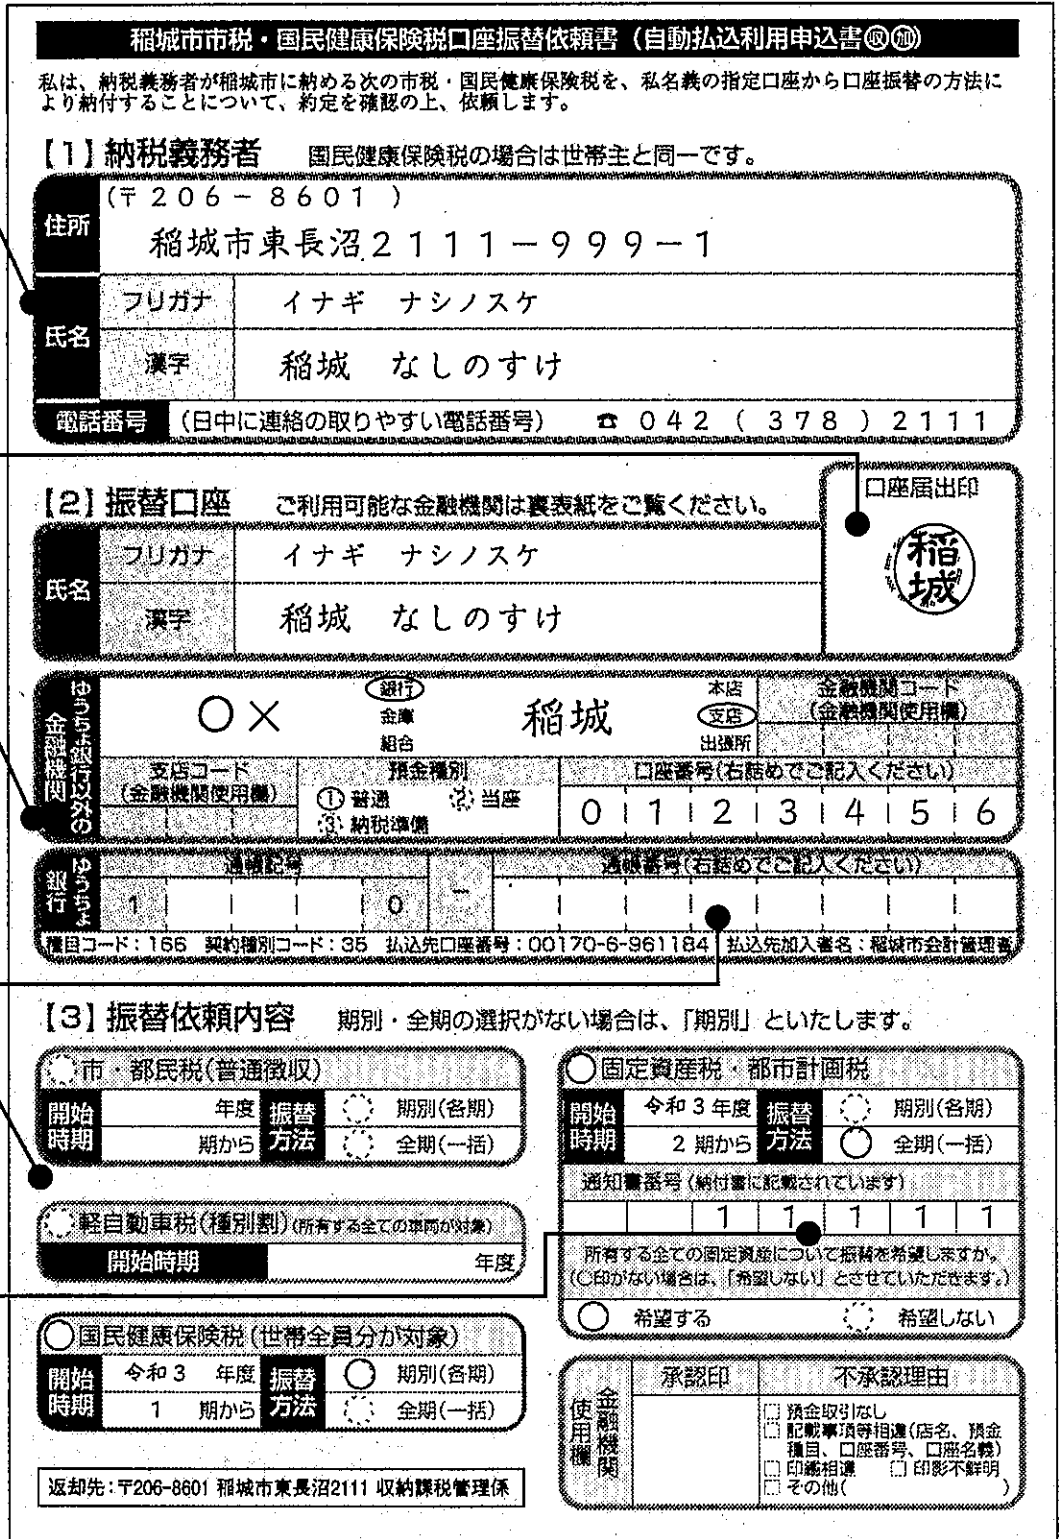 稲城市市税・国民健康保険税口座振替依頼書（自動払込利用申込書㊞㊎）
私は、納税義務者が稲城市に納める次の市税・国民健康保険税を、私名義の指定口座から口座振替の方法に
より納付することについて、約定を確認の上、依頼します。
【1】納税義務者　国民健康保険税の場合は世帯主と同一です。
住所
(〒206－8601)
稲城市東長沼2111－999－1
氏名
フリガナ　イナギ　ナシノスケ
漢字　稲城　なしのすけ
電話番号　(日中に連絡の取りやすい電話番号)　☎ 042(378)2111
【2】振替口座　ご利用可能な金融機関は裏表紙をご覧ください。
口座届出印
稲城
氏名
フリガナ　イナギ　ナシノスケ
漢字　稲城　なしのすけ
ゆうちょ銀行以外の金融機関
○×　銀行　金庫　組合　稲城　本店　支店　出張所
金融機関コード
(金融機関使用欄)
支店コード
(金融機関使用欄)
預金種別
① 普通　② 当座
③ 納税準備
口座番号(右詰めでご記入ください)
0 1 2 3 4 5 6
ゆうちょ銀行
通帳記号　通帳番号(右詰めでご記入ください)
1　0　－
種目コード：166　契約種別コード：35　払込先口座番号：00170-6-961184　払込先加入者名：稲城市会計管理者
【3】振替依頼内容　期別・全期の選択がない場合は、「期別」といたします。
市・都民税(普通徴収)
開始時期　年度　期から
振替方法　期別(各期)　全期(一括)
軽自動車税(種別割)(所有する全ての車両が対象)
開始時期　年度
○国民健康保険税(世帯全員分が対象)
開始時期　令和3　年度　1　期から
振替方法　○　期別(各期)　全期(一括)
返却先：〒206-8601 稲城市東長沼2111 収納課税管理係
○固定資産税・都市計画税
開始時期　令和3年度　2 期から
振替方法　期別(各期)　○　全期(一括)
通知書番号(納付書に記載されています)
1 1 1 1 1
所有する全ての固定資産について振替を希望しますか。
(○印がない場合は、「希望しない」とさせていただきます。)
○　希望する　希望しない
金融機関使用欄
承認印　不承認理由
□ 預金取引なし
□ 記載事項等相違(店名、預金
種目、口座番号、口座名義)
□ 印鑑相違　□ 印影不鮮明
□ その他(　)